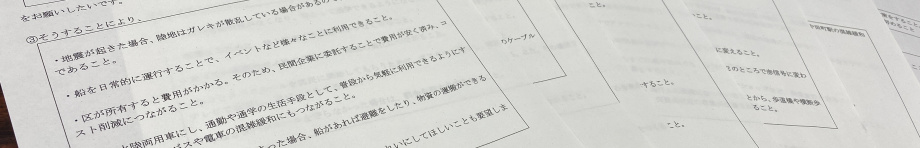 をお願いしたいです。
③そうすることにより、
・地震が起きた場合、陸地はガレキが散乱している場合があるの
であること。
・船を日常的に運行することで、イベントなど様々なことに利用できること。
・区が所有すると費用がかかる。そのため、民間企業に委託することで費用が安く済み、コ
スト削減につながること。
と陸両用車にし、通勤や通学の生活手段として、普段から気軽に利用できるようにす
バスや電車の混雑緩和にもつながること。
った場合、船があれば避難をしたり、物資の運搬ができる
れいにしてほしいことも要望しま
うケーブル
こと。
すること。
こと。
こと。
に変えること。
とから、歩道橋や横断歩
ること。